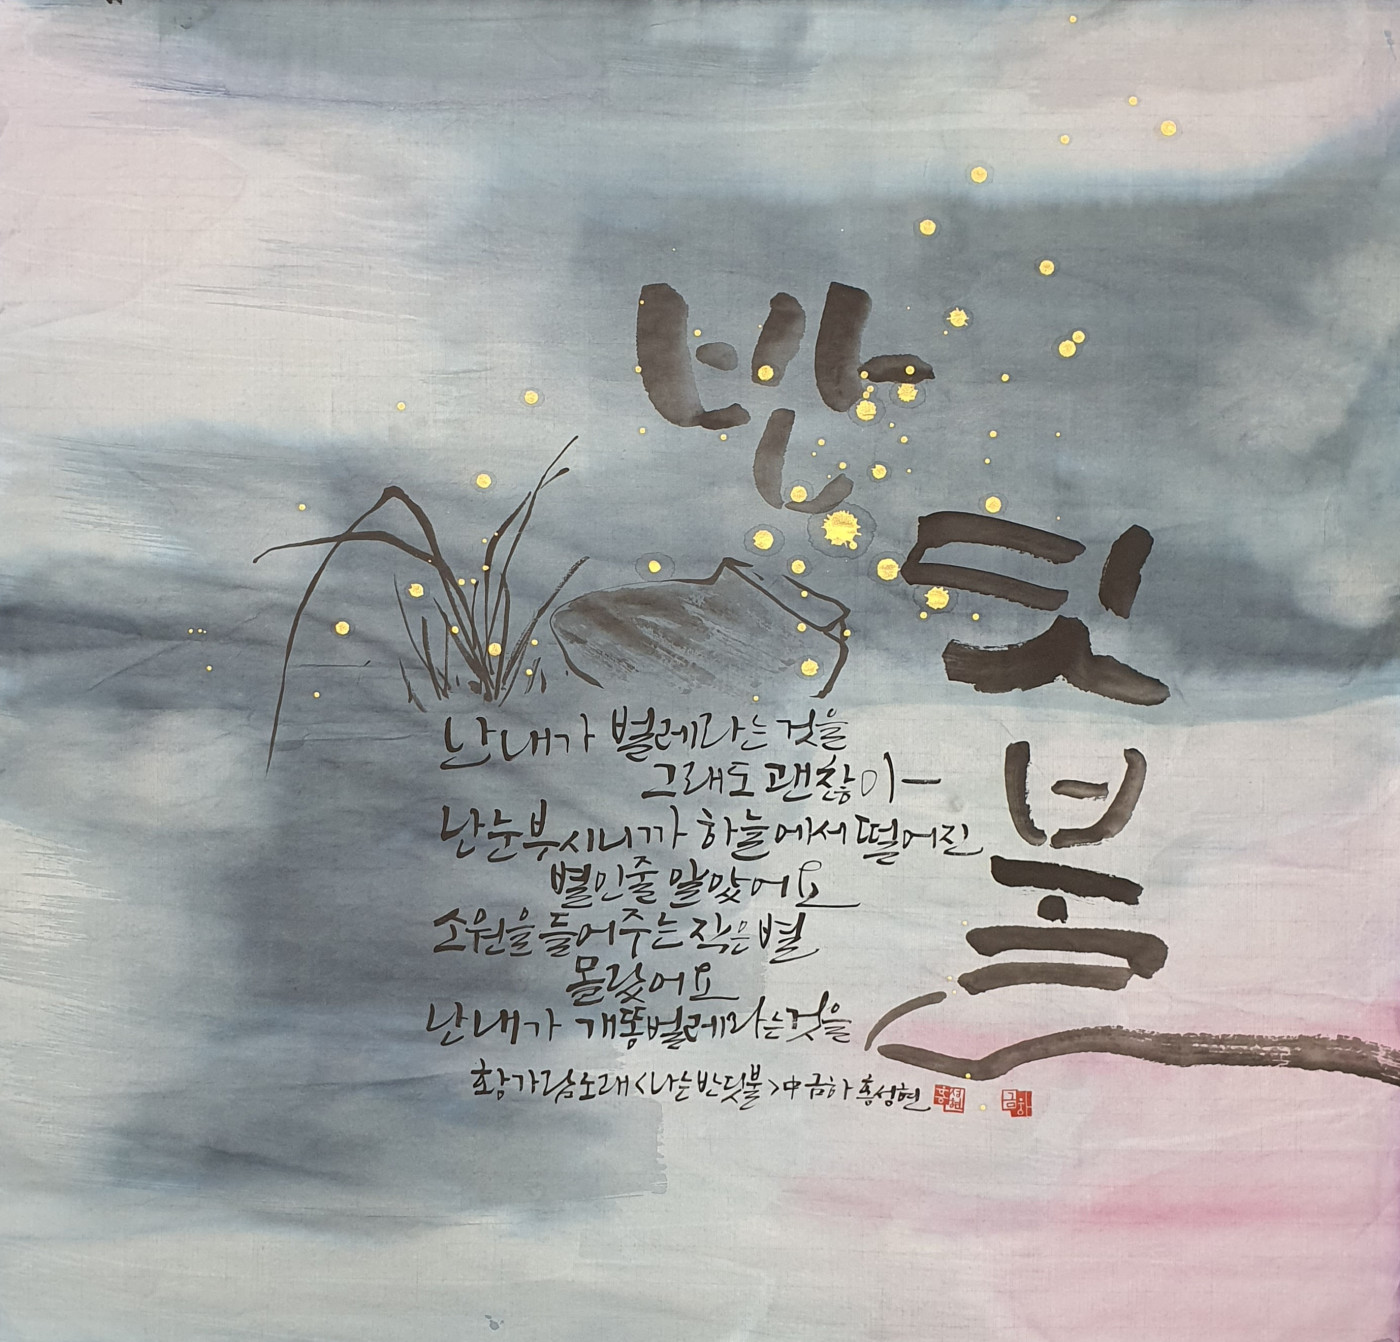 반
딧
불
난 내가 벌레라는 것을
그래도 괜찮아 ー
난 눈부시니까 하늘에서 떨어진
별인줄 알았어요
소원을 들어주는 작은별
몰랐어요
난 내가 개똥벌레라는 것을
황가람 노래 <나는 반딧불> 中 금하 홍성현